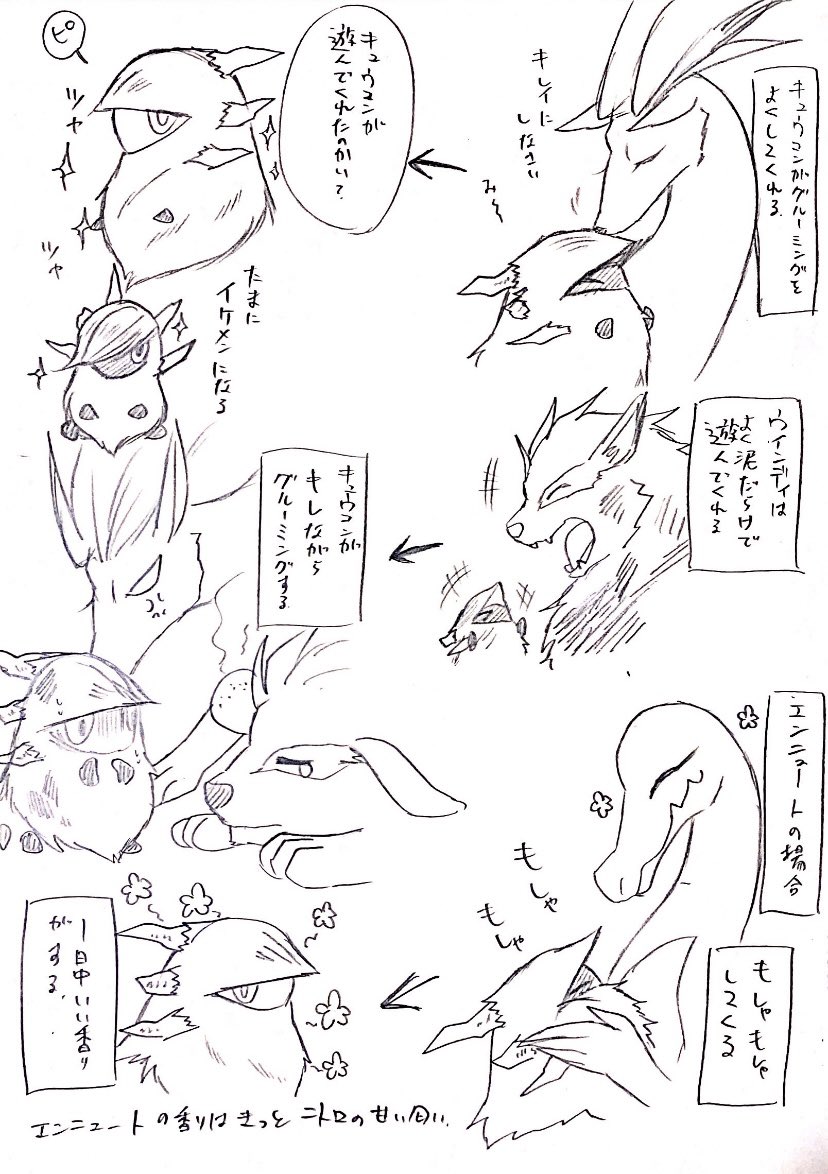 キュウコンがグルーミングを
よくしてくれる.
キレイに
しなさい
み〜
キュウコンが
遊んでくれたのかい?
ピ
ツヤ
ツヤ
たまに
イケメンになる
ウインディは
よく泥だらけで
遊んでくれる
キュウコンが
キレながら
グルーミングする.
エンニュートの場合
もしゃ
もしゃ
もしゃもしゃ
してくる
1日中いい香り
がする.
エンニュートの香りはきっとニトロの甘い匂い.